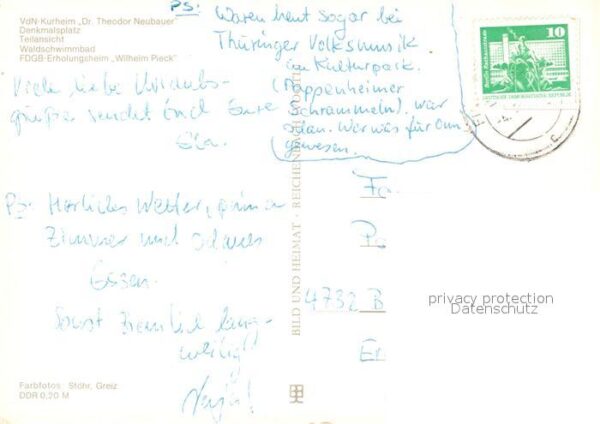 VdN-Kurheim „Dr. Theodor Neubauer"
Denkmalsplatz
Teilansicht
Waldschwimmbad
FDGB-Erholungsheim „Wilhelm Pieck"
Viele liebe Urlaubs-
grüße sendet Euch Eure
PS: Waren heut sogar bei
Thüringer Volksmusik
im Kulturpark.
(Pappenheimer
Schrammeln). War
schau. Wär was für Omi
gewesen.
PS: Herrliches Wetter, prima
Zimmer und schönes
Essen.
Sonst ziemlich lang-
weilig!
BILD UND HEIMAT · REICHENBACH
10
DEUTSCHE DEMOKRATISCHE REPUBLIK
4732 B
privacy protection
Datenschutz
Farbfotos Stöhr, Greiz
DDR 0,20 M